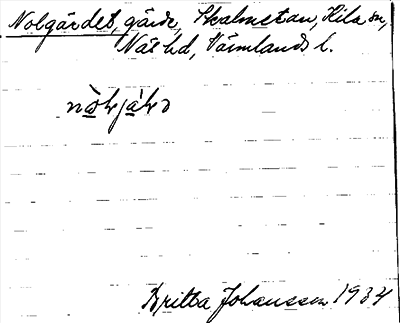 Nolgärdet, gärde, Skalmstan, Kila sn,
Näs hd, Värmlands l.
Britta Johansson 1934